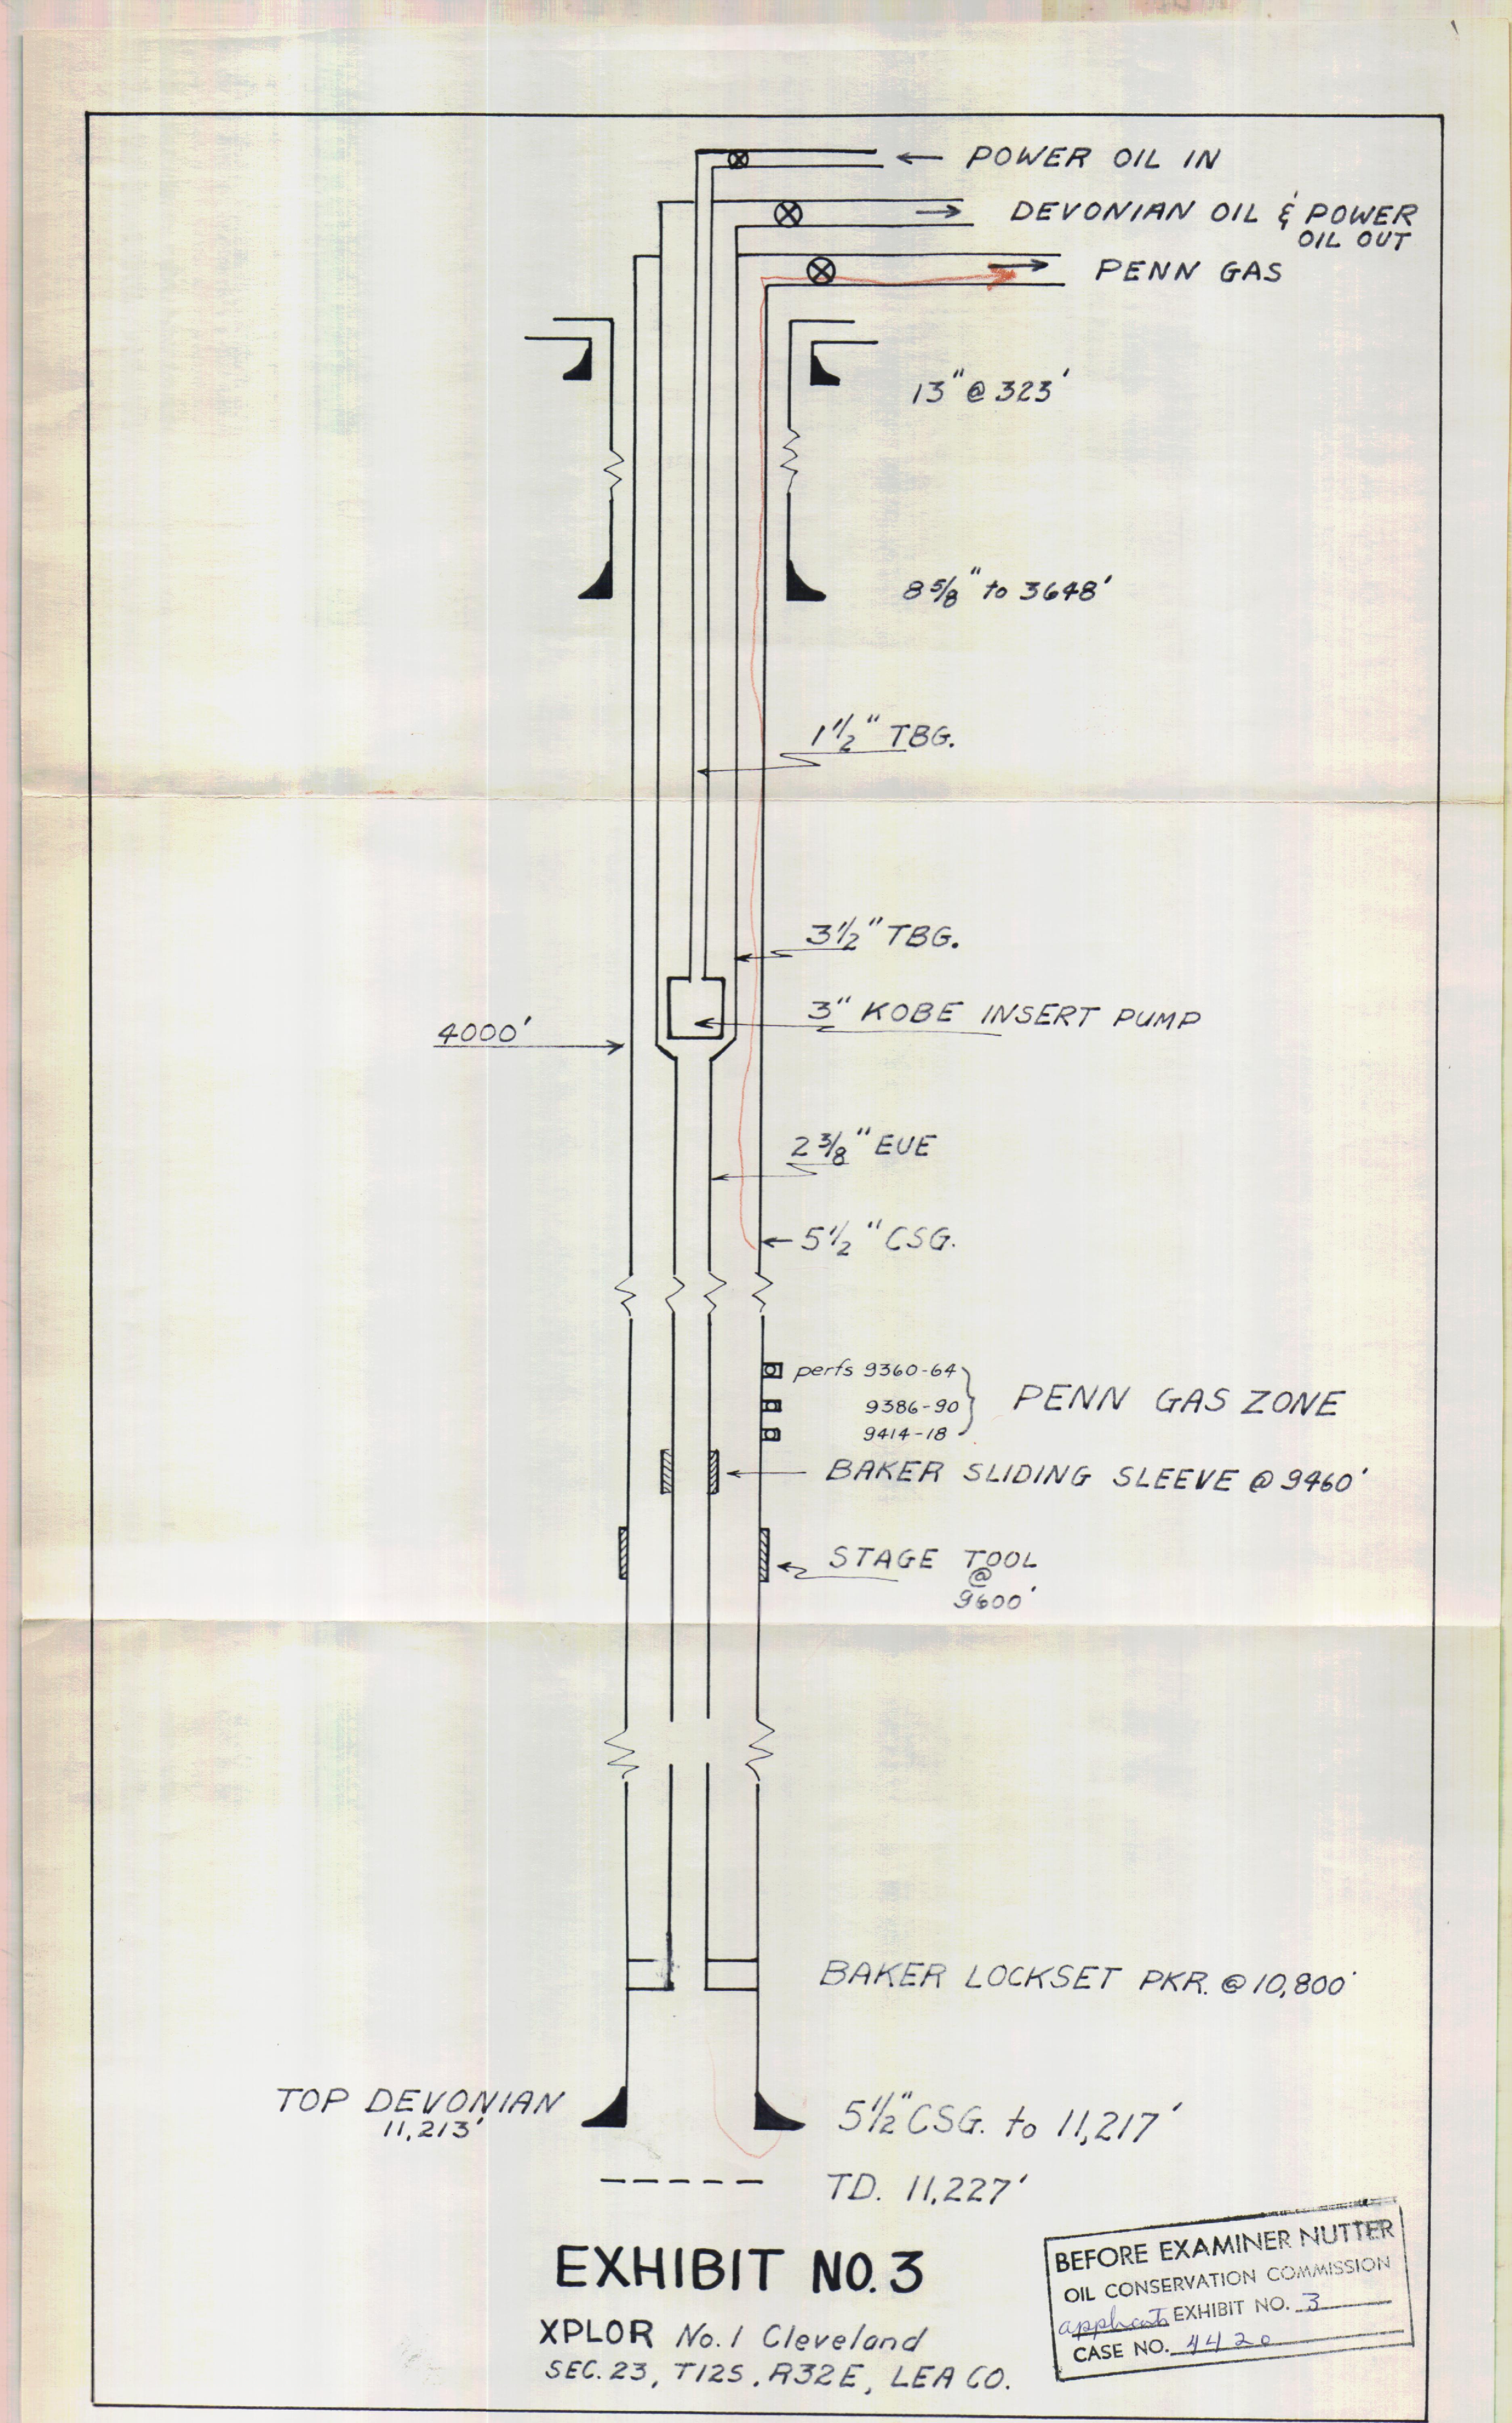 POWER OIL IN
DEVONIAN OIL & POWER
OIL OUT
PENN GAS
13" @ 323'
8 5/8" to 3648'
1 1/2" TBG.
3 1/2" TBG.
3" KOBE INSERT PUMP
4000'
2 3/8" EUE
5 1/2" CSG.
perfs 9360-64
9386-90
9414-18
PENN GAS ZONE
BAKER SLIDING SLEEVE @ 9460'
STAGE TOOL
@
9600'
BAKER LOCKSET PKR. @ 10,800'
TOP DEVONIAN
11,213'
5 1/2" CSG. to 11,217'
TD. 11,227'
EXHIBIT NO. 3
XPLOR No. 1 Cleveland
SEC. 23, T12S, R32E, LEA CO.
BEFORE EXAMINER NUTTER
OIL CONSERVATION COMMISSION
EXHIBIT NO. 3
CASE NO. 4420